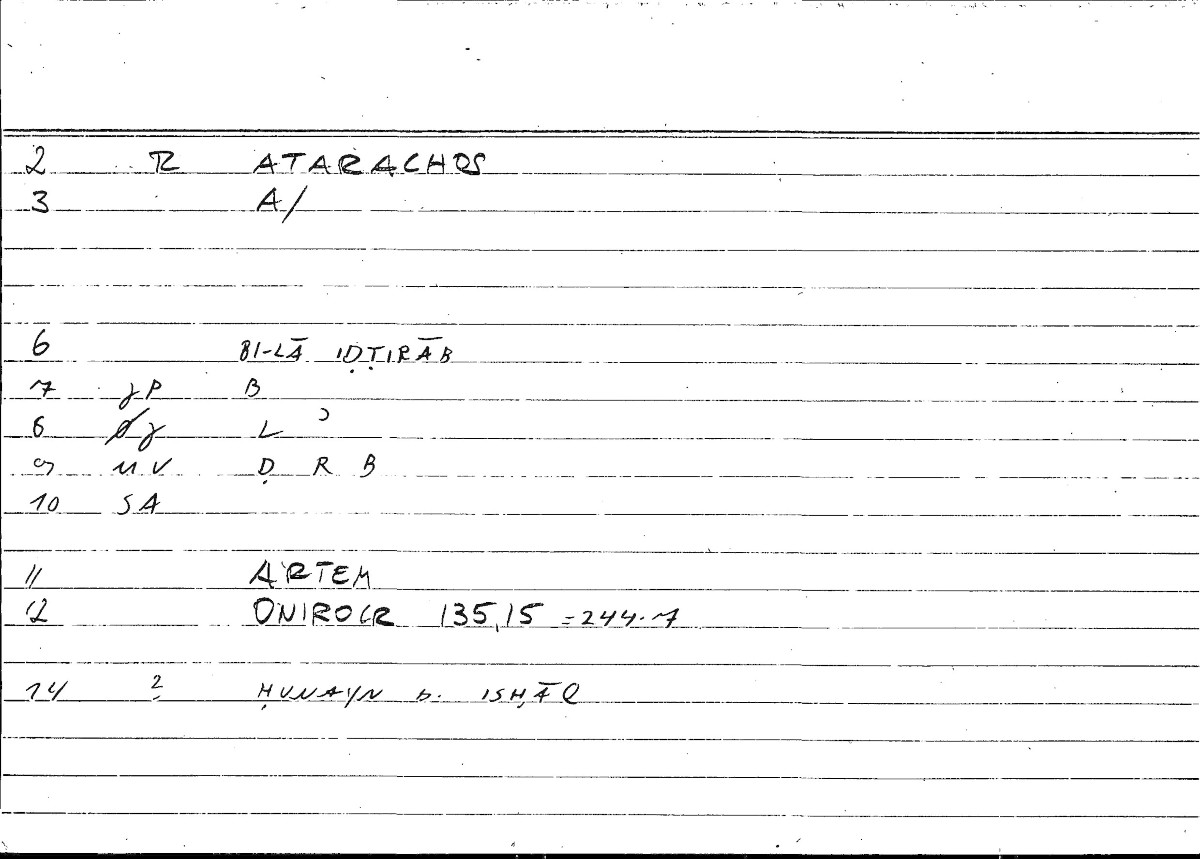 2 R ATARACHOS
3 A/
6 BI-LĀ IḌṬIRĀB
7 JP B
8 J L ʾ
9 MV Ḍ R B
10 SA
11 ARTEM
12 ONIROCR 135,15 = 244.7
14 2 ḤUNAYN b. ISḤĀQ